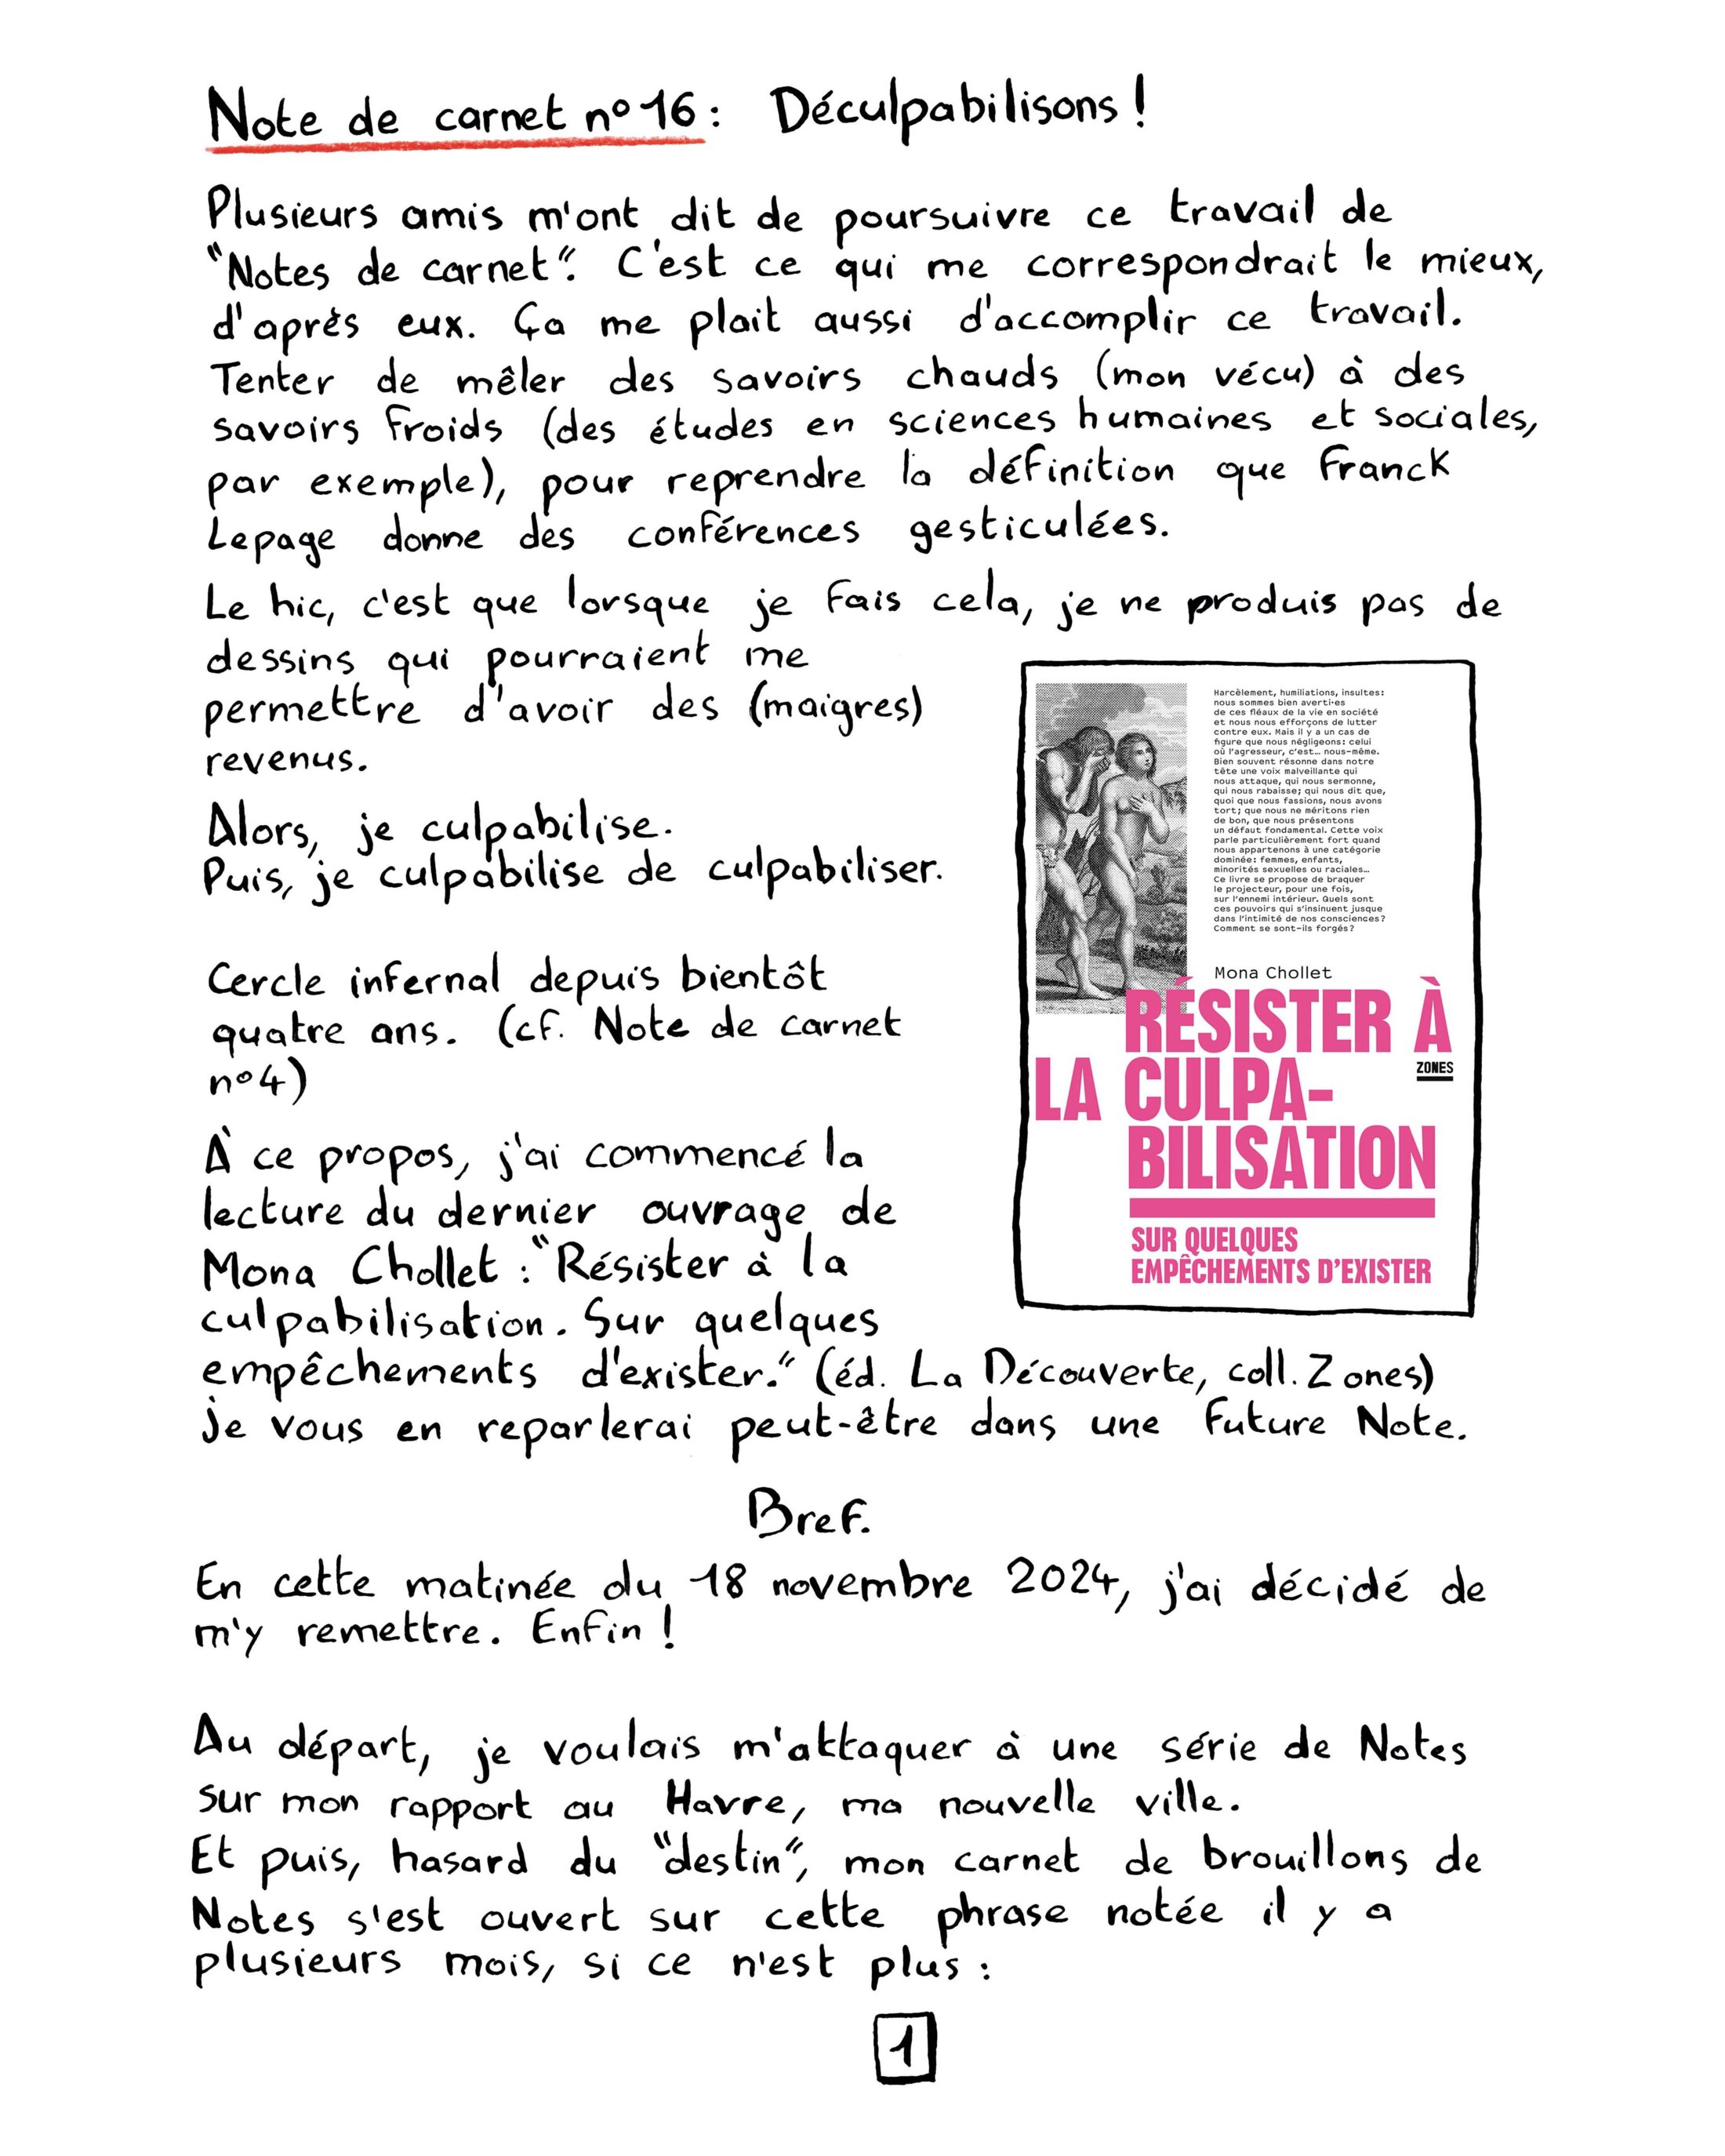 Note de carnet n° 16 : Déculpabilisons !
Plusieurs amis m'ont dit de poursuivre ce travail de
"Notes de carnet". C'est ce qui me correspondrait le mieux,
d'après eux. Ça me plait aussi d'accomplir ce travail.
Tenter de mêler des savoirs chauds (mon vécu) à des
savoirs froids (des études en sciences humaines et sociales,
par exemple), pour reprendre la définition que Franck
Lepage donne des conférences gesticulées.
Le hic, c'est que lorsque je fais cela, je ne produis pas de
dessins qui pourraient me
permettre d'avoir des (maigres)
revenus.
Alors, je culpabilise.
Puis, je culpabilise de culpabiliser.
Cercle infernal depuis bientôt
quatre ans. (cf. Note de carnet
n°4)
À ce propos, j'ai commencé la
lecture du dernier ouvrage de
Mona Chollet : "Résister à la
culpabilisation. Sur quelques
empêchements d'exister." (éd. La Découverte, coll. Zones)
je vous en reparlerai peut-être dans une future Note.
Harcèlement, humiliations, insultes:
nous sommes bien averti·es
de ces fléaux de la vie en société
et nous nous efforçons de lutter
contre eux. Mais il y a un cas de
figure que nous négligeons: celui
où l'agresseur, c'est… nous-même.
Bien souvent résonne dans notre
tête une voix malveillante qui
nous attaque, qui nous sermonne,
qui nous rabaisse; qui nous dit que,
quoi que nous fassions, nous avons
tort; que nous ne méritons rien
de bon, que nous présentons
un défaut fondamental. Cette voix
parle particulièrement fort quand
nous appartenons à une catégorie
dominée: femmes, enfants,
minorités sexuelles ou raciales…
Ce livre se propose de braquer
le projecteur, pour une fois,
sur l'ennemi intérieur. Quels sont
ces pouvoirs qui s'insinuent jusque
dans l'intimité de nos consciences?
Comment se sont-ils forgés?
Mona Chollet
RÉSISTER À
LA CULPA-
BILISATION
ZONES
SUR QUELQUES
EMPÊCHEMENTS D'EXISTER
Bref.
En cette matinée du 18 novembre 2024, j'ai décidé de
m'y remettre. Enfin !
Au départ, je voulais m'attaquer à une série de Notes
sur mon rapport au Havre, ma nouvelle ville.
Et puis, hasard du "destin", mon carnet de brouillons de
Notes s'est ouvert sur cette phrase notée il y a
plusieurs mois, si ce n'est plus :
1